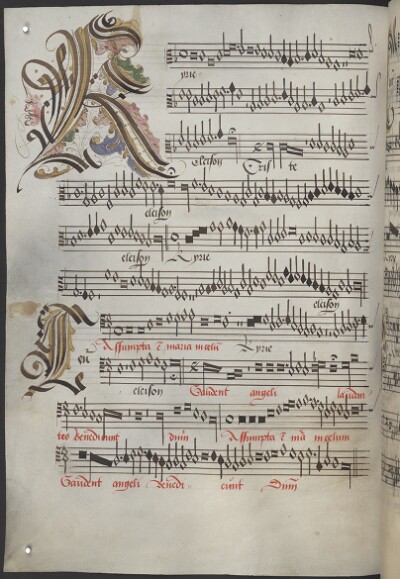 Kyrie
eleison Criste
eleison
eleison Kyrie
eleison
Assumpta ē maria in celū Kyrie
eleison Gaudent angeli
benedicunt dnm Assumpta ē mā in celum
Gaudent angeli Benedicunt Dnm